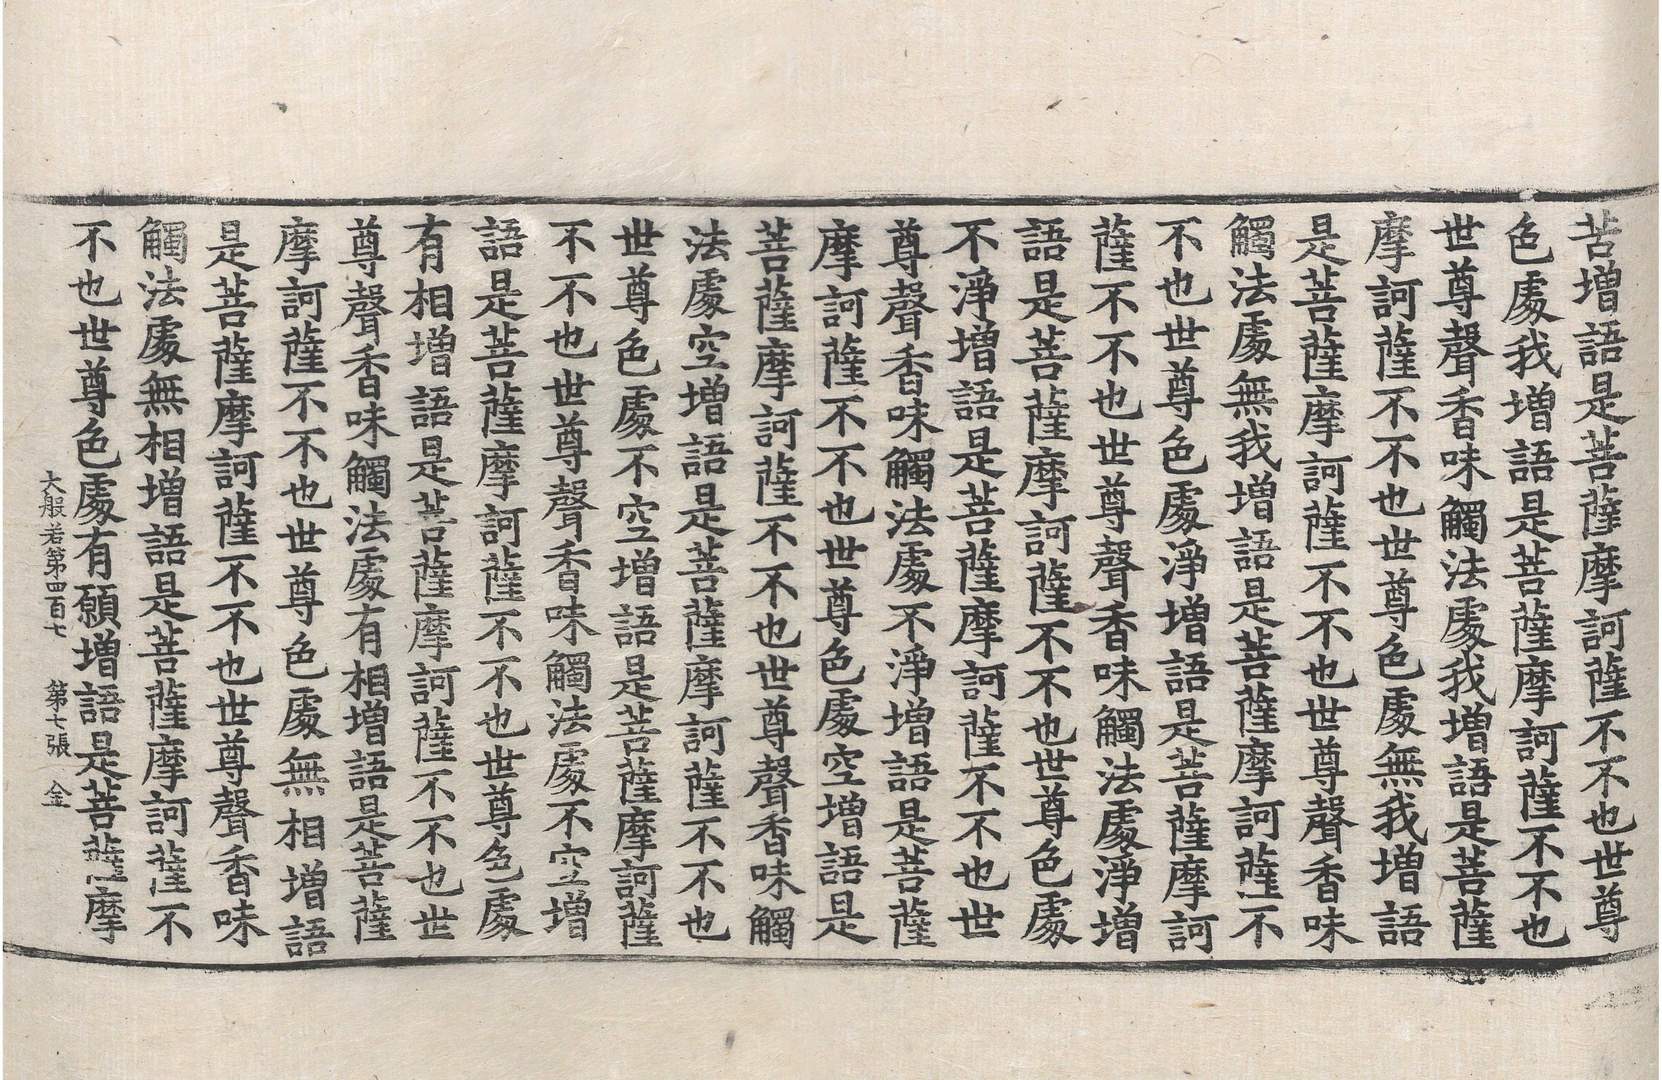 苦增語是菩薩摩訶薩不不也世尊
色處我增語是菩薩摩訶薩不不也
世尊聲香味觸法處我增語是菩薩
摩訶薩不不也世尊色處無我增語
是菩薩摩訶薩不不也世尊聲香味
觸法處無我增語是菩薩摩訶薩不
不也世尊色處淨增語是菩薩摩訶
薩不不也世尊聲香味觸法處淨增
語是菩薩摩訶薩不不也世尊色處
不淨增語是菩薩摩訶薩不不也世
尊聲香味觸法處不淨增語是菩薩
摩訶薩不不也世尊色處空增語是
菩薩摩訶薩不不也世尊聲香味觸
法處空增語是菩薩摩訶薩不不也
世尊色處不空增語是菩薩摩訶薩
不不也世尊聲香味觸法處不空增
語是菩薩摩訶薩不不也世尊色處
有相增語是菩薩摩訶薩不不也世
尊聲香味觸法處有相增語是菩薩
摩訶薩不不也世尊色處無相增語
是菩薩摩訶薩不不也世尊聲香味
觸法處無相增語是菩薩摩訶薩不
不也世尊色處有願增語是菩薩摩
大般若第四百七 第七張 金